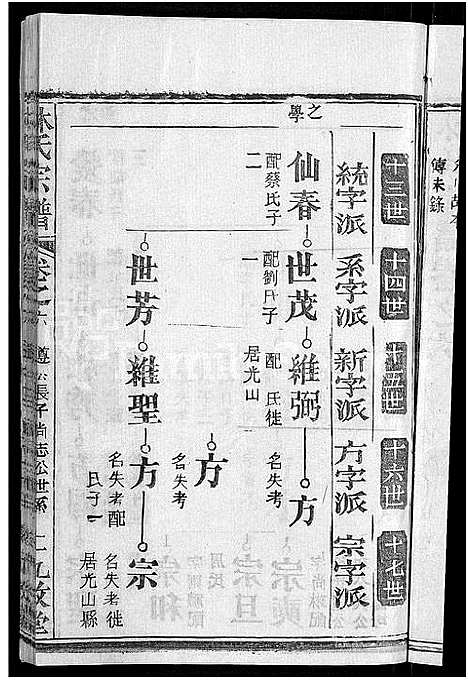 傳未錄
十三世 十四世 十五世 十六世 十七世
統字派 系字派 新字派 方字派 宗字派
之學
仙春 世茂 維弼 方
配蔡氏子二
配劉氏子一
配 氏徙居光山
方
名失考
世芳 維聖 方 宗
名失考配 氏子一
名失考徙居光山縣
林氏宗譜 卷之六 尊公長子尚志公世系 九牧堂